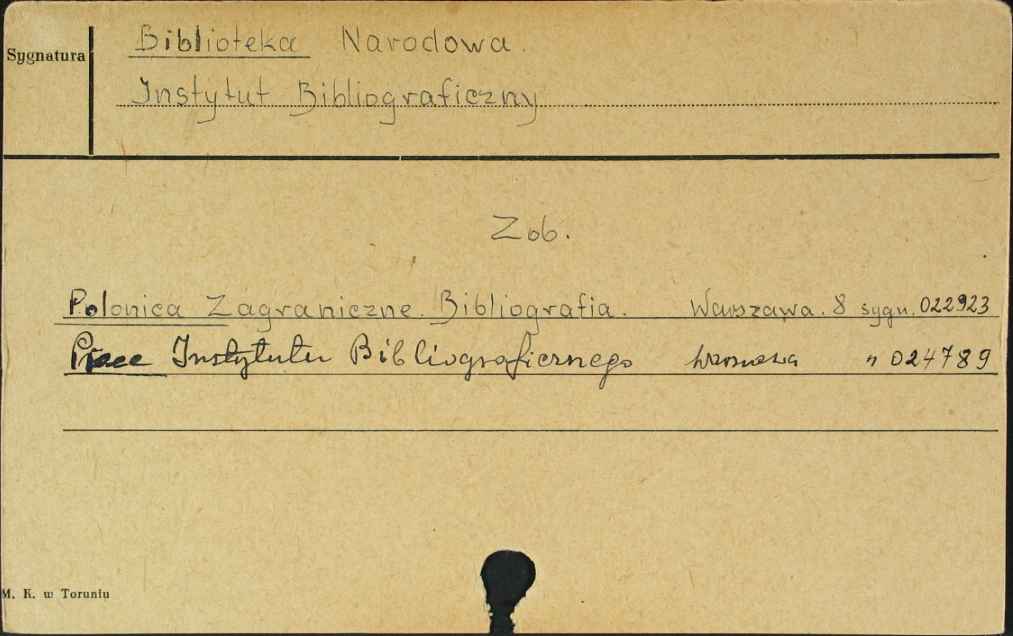 Sygnatura
Biblioteka Narodowa.
Instytut Bibliograficzny
Zob.
Polonica Zagraniczne. Bibliografia. Warszawa. 8 sygn. 022923
Prace Instytutu Bibliograficznego Warszawa " 024789
M. K. w Toruniu